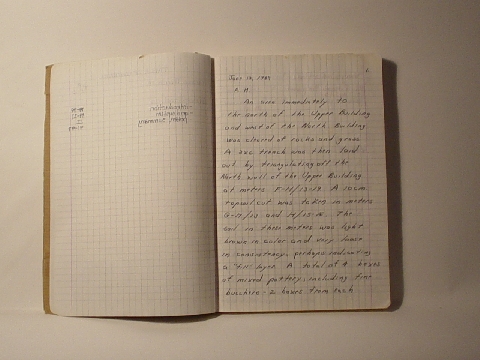 June 13, 1983
A.M.
An area immediately to
the north of the Upper Building
and west of the North Building
was cleared of rocks and grass.
A exc trench was then laid
out by triangulating off the
North wall of the Upper Building
at meters
topsoil cut was taken in meters
and The
soil in these meters was light
brown in color and very loose
in consistency, perhaps indicating
a "fill" layer. A total of 4 boxes
of mixed pottery, including fine
bucchero - 2 boxes from each